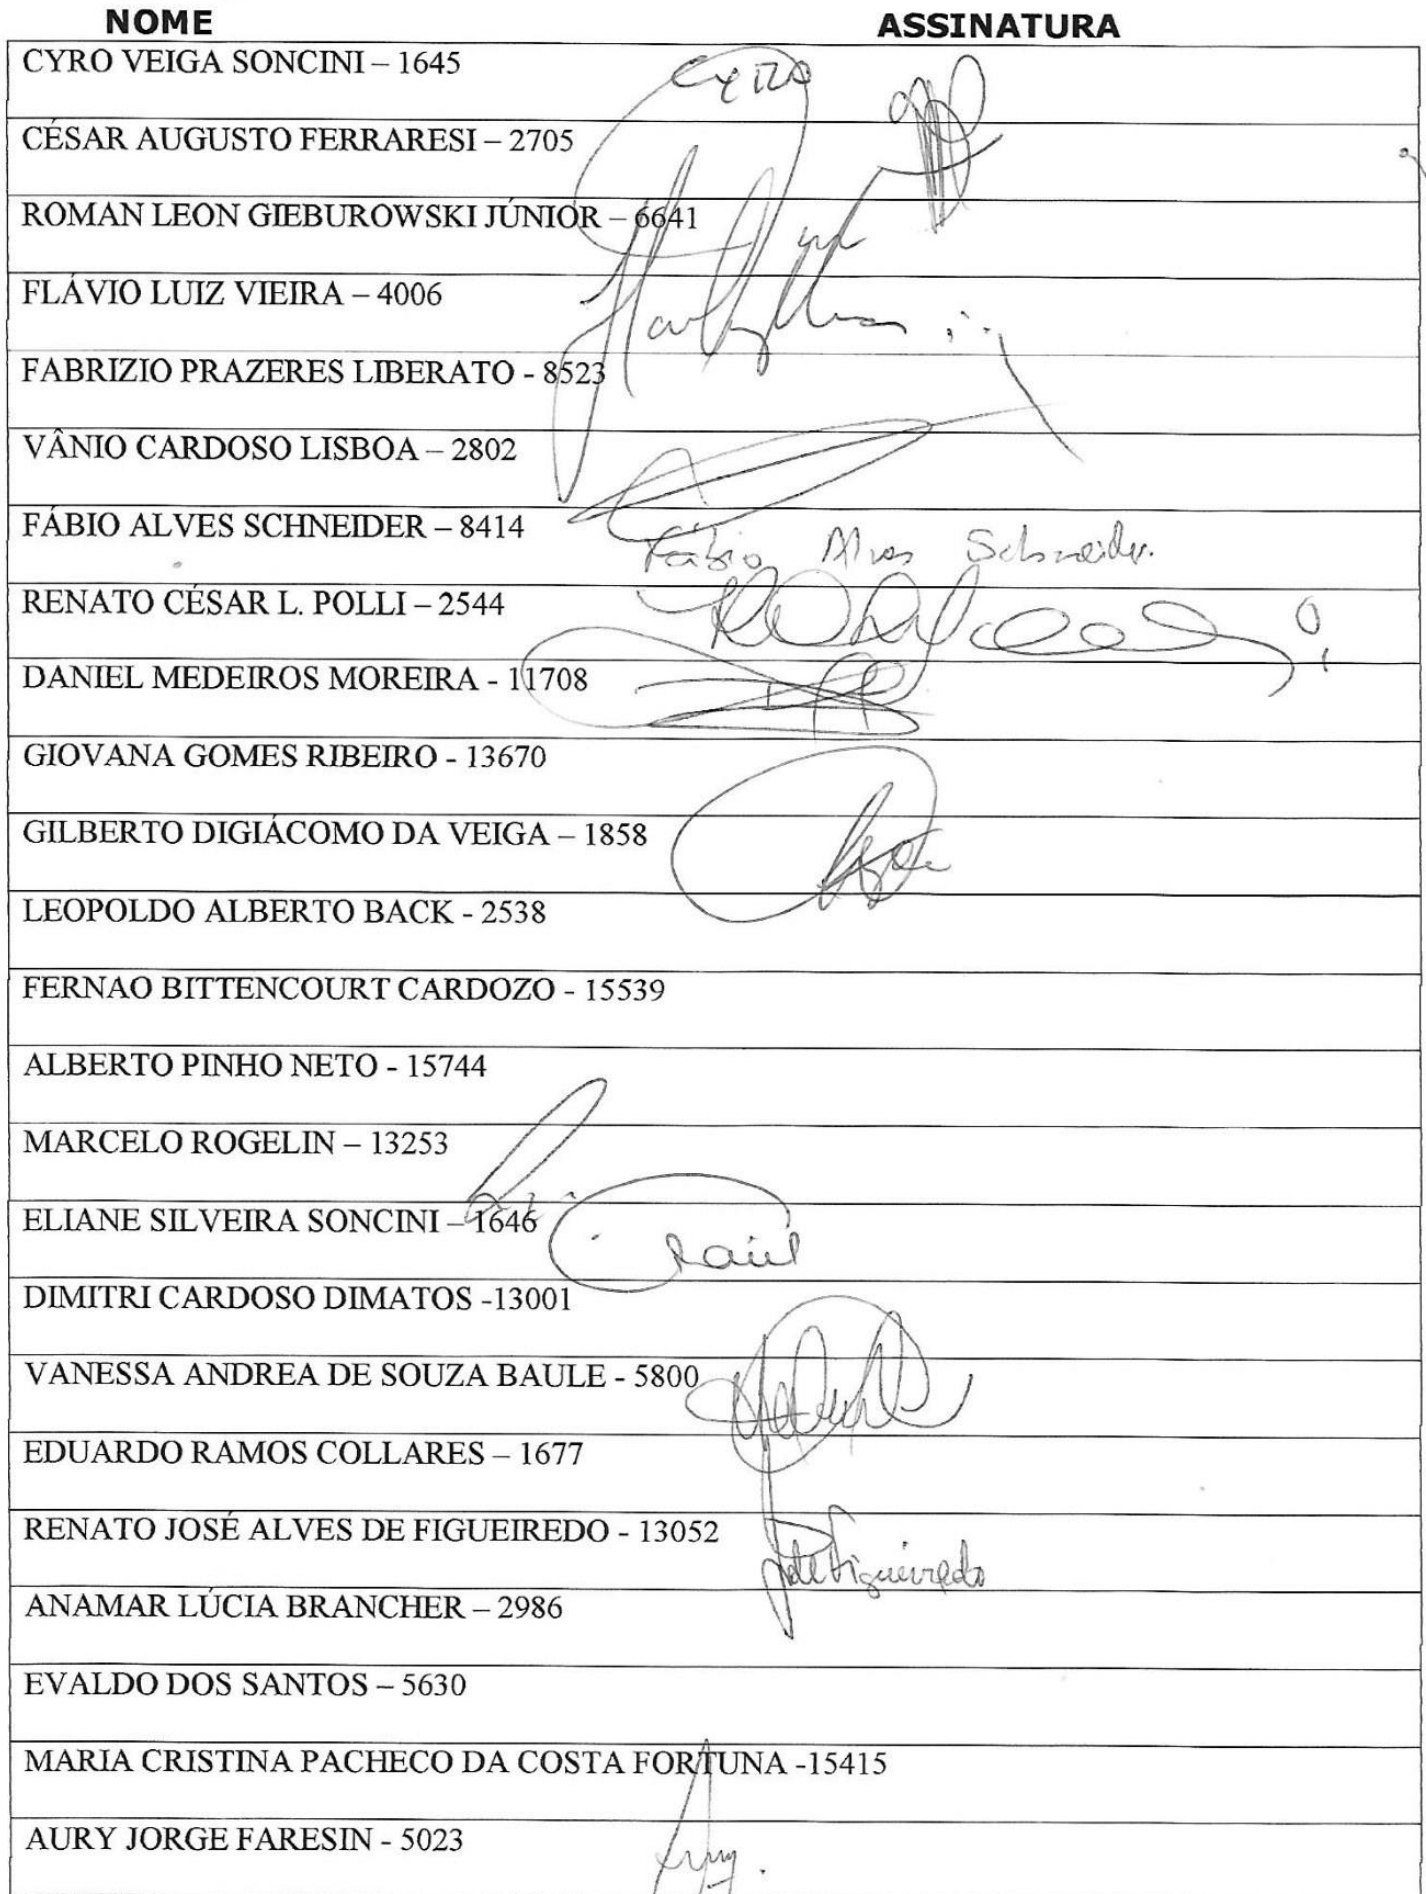 NOME ASSINATURA
CYRO VEIGA SONCINI – 1645 Cyro
CÉSAR AUGUSTO FERRARESI – 2705
ROMAN LEON GIEBUROWSKI JÚNIOR – 6641
FLÁVIO LUIZ VIEIRA – 4006
FABRIZIO PRAZERES LIBERATO - 8523
VÂNIO CARDOSO LISBOA – 2802
FÁBIO ALVES SCHNEIDER – 8414 Fábio Alves Schneider.
RENATO CÉSAR L. POLLI – 2544
DANIEL MEDEIROS MOREIRA - 11708
GIOVANA GOMES RIBEIRO - 13670
GILBERTO DIGIÁCOMO DA VEIGA – 1858
LEOPOLDO ALBERTO BACK - 2538
FERNAO BITTENCOURT CARDOZO - 15539
ALBERTO PINHO NETO - 15744
MARCELO ROGELIN – 13253
ELIANE SILVEIRA SONCINI – 1646
DIMITRI CARDOSO DIMATOS -13001
VANESSA ANDREA DE SOUZA BAULE - 5800
EDUARDO RAMOS COLLARES – 1677
RENATO JOSÉ ALVES DE FIGUEIREDO - 13052
ANAMAR LÚCIA BRANCHER – 2986
EVALDO DOS SANTOS – 5630
MARIA CRISTINA PACHECO DA COSTA FORTUNA -15415
AURY JORGE FARESIN - 5023